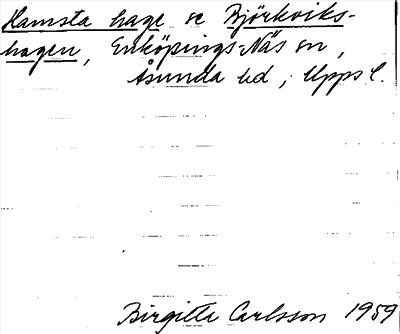 Hamsta hage se Björkviks-
hagen, Enköpings-Näs sn,
Åsunda hd, Upps l.
Birgitta Carlsson 1959